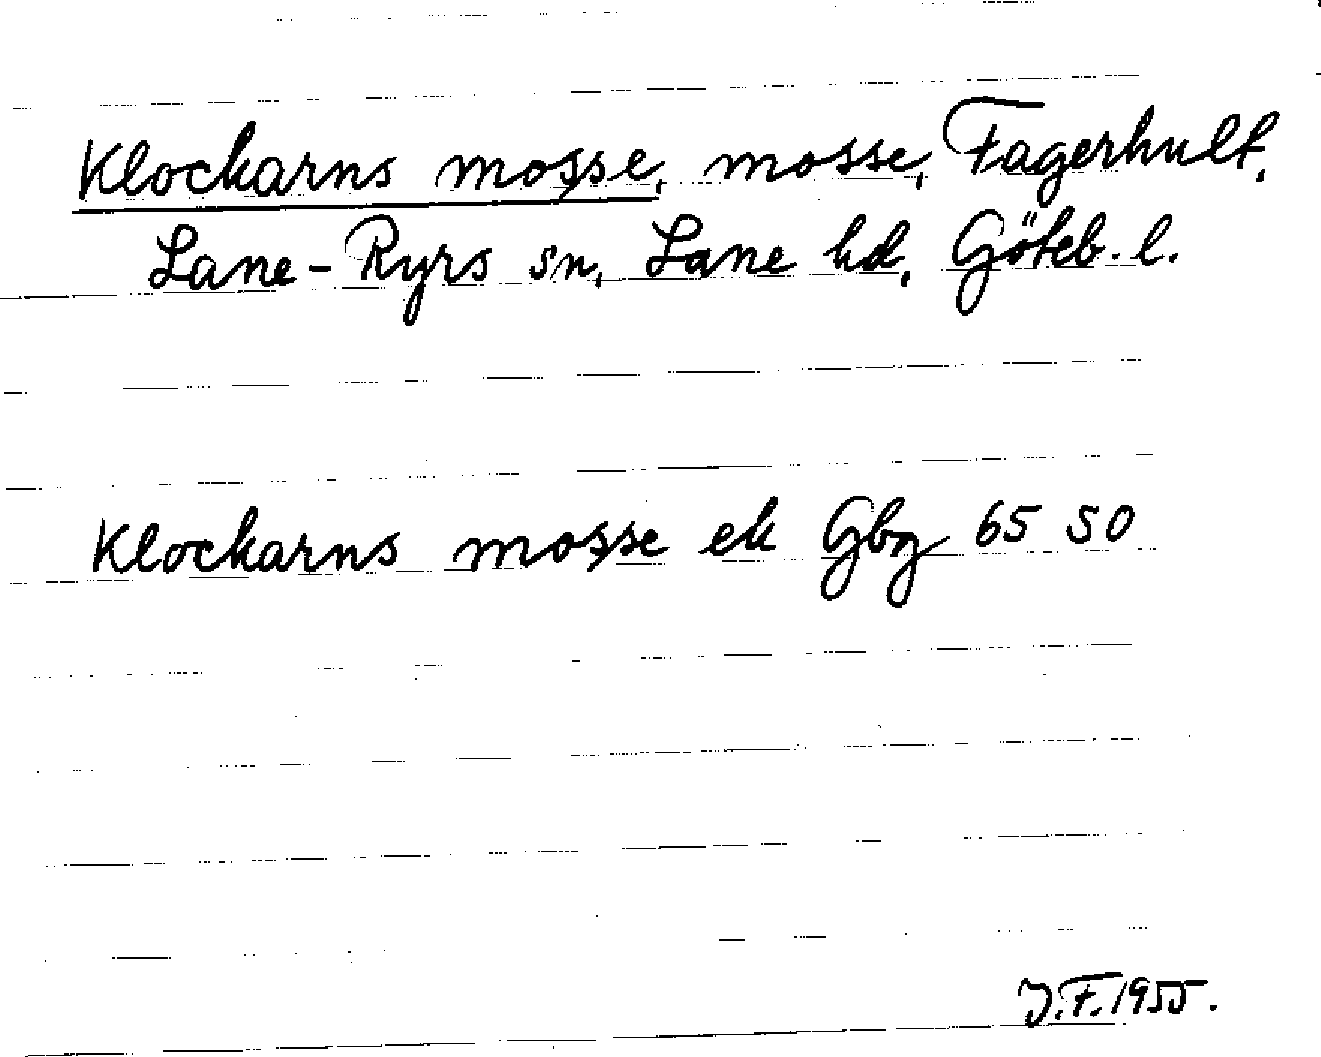 Klockarns mosse, mosse, Fagerhult,
Lane-Ryrs sn, Lane hd, Göteb. l.
Klockarns mosse ek Gbg 65 50
J.F. 1955.